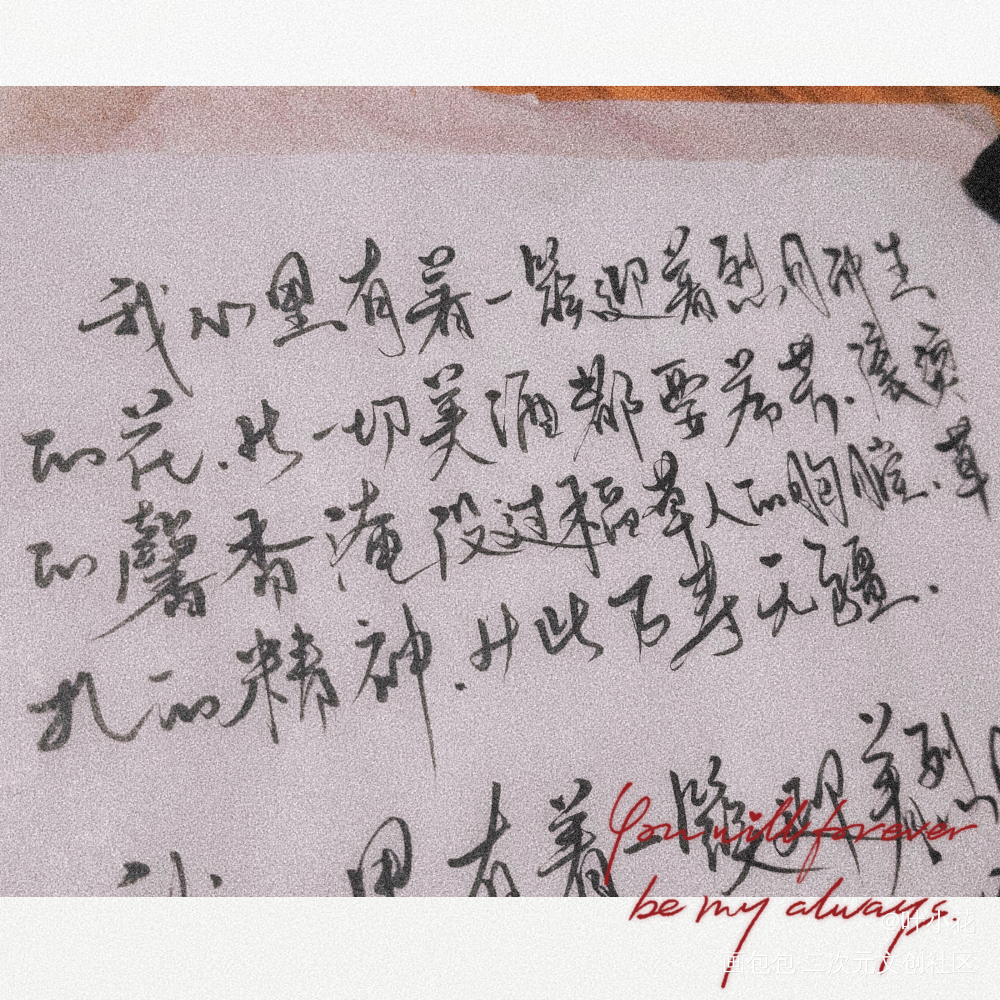 我心里有着一簇迎着烈日而生
的花.比一切美酒都要芬芳.滚烫
的馨香淹没过稻草人的胸膛.草
扎的精神.从此万寿无疆.
心里有着一簇迎着烈日
You will forever
be my always.
@叶小花
面包包·二次元文创社区